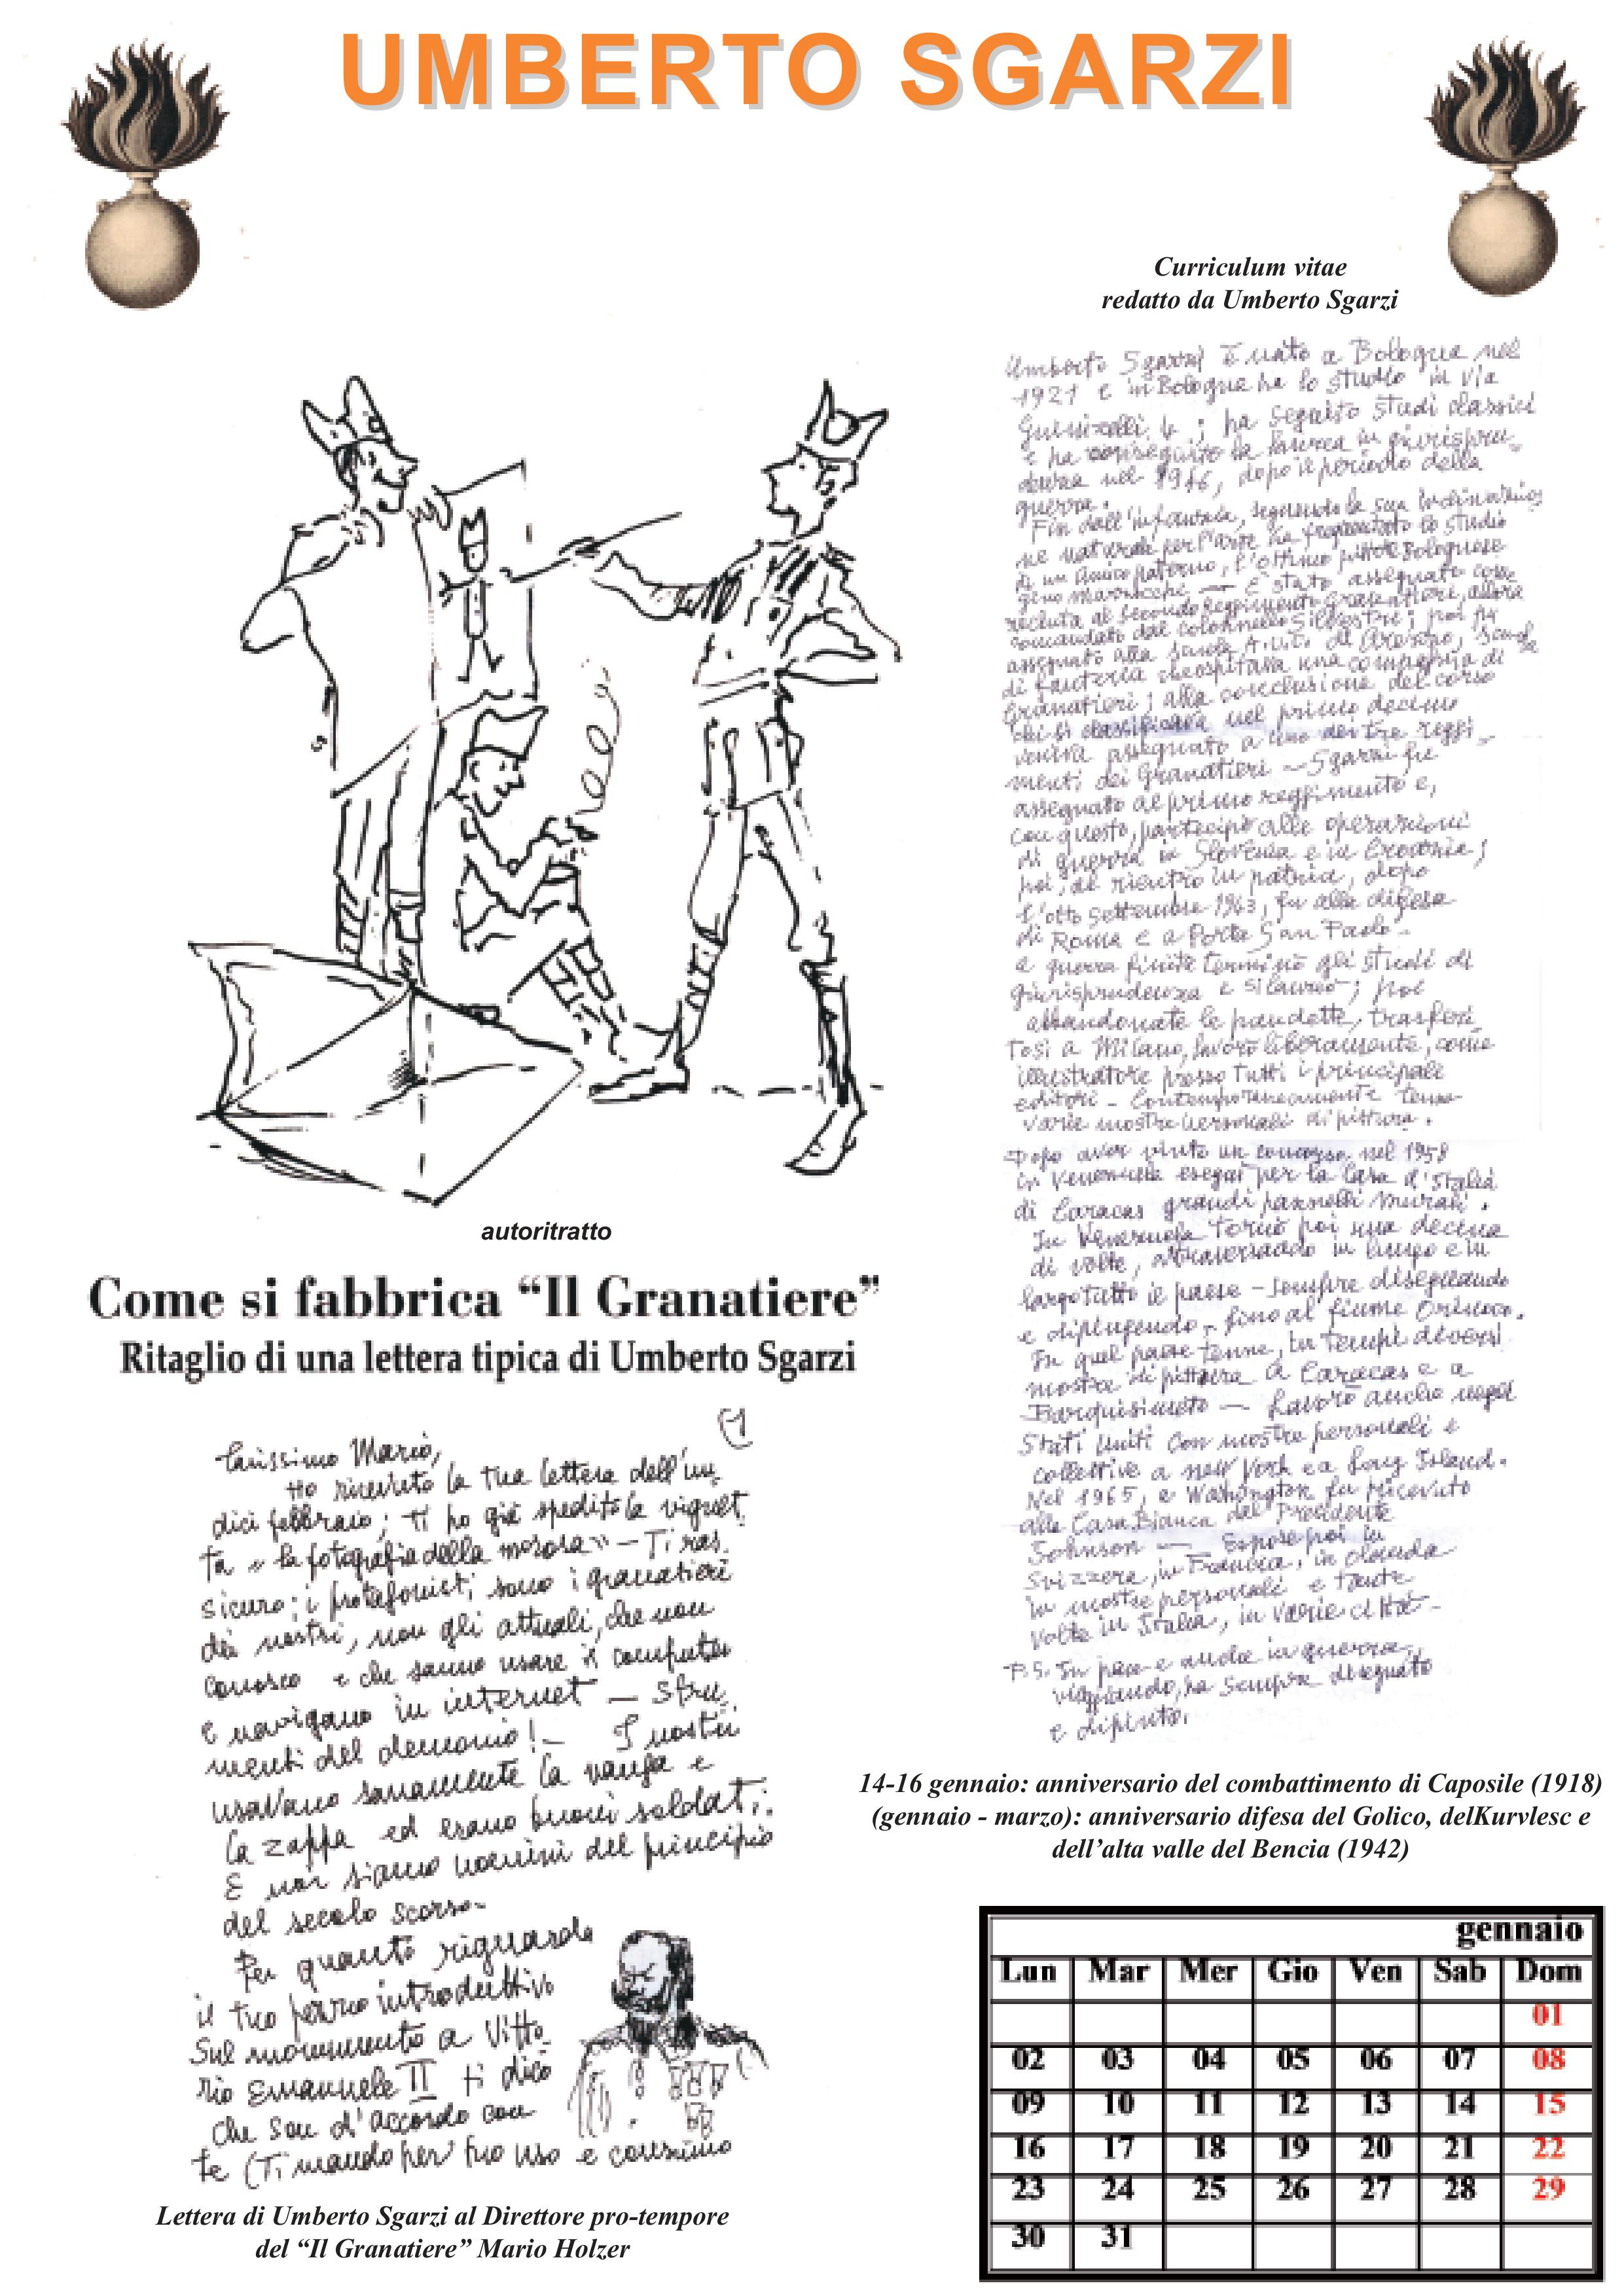 UMBERTO SGARZI
Curriculum vitae
redatto da Umberto Sgarzi
Umberto Sgarzi è nato a Bologna nel
1921 e in Bologna ha lo studio in via
Guinizelli ; ha seguito studi classici
e ha conseguito la laurea in giurispru-
denza nel 1946, dopo il periodo della
guerra.
Fin dall'infanzia, seguendo la sua inclinazio-
ne naturale per l'arte ha frequentato lo studio
di un amico paterno, l'ottimo pittore bolognese
— È stato assegnato come
recluta al secondo Reggimento Granatieri, allora
comandato dal colonnello Silvestri; poi fu
assegnato alla scuola A.U.C. di Arezzo, scuola
di fanteria che ospitava una compagnia di
Granatieri; alla conclusione del corso
chi si classificava nel primo decimo
veniva assegnato a uno dei tre reggi-
menti dei Granatieri — Sgarzi fu
assegnato al primo reggimento e,
con questo, partecipò alle operazioni
di guerra in Slovenia e in Croazia;
poi, al rientro in patria, dopo
l'otto settembre 1943, fu alla difesa
di Roma e a Porta San Paolo -
a guerra finita terminò gli studi di
giurisprudenza e si laureò; poi
abbandonate le pandette, trasferi-
tosi a Milano, lavorò liberamente, come
illustratore presso tutti i principali
editori - Contemporaneamente tenne
varie mostre personali di pittura.
Dopo aver vinto un concorso nel 1958
in Venezuela eseguì per la Casa d'Italia
di Caracas grandi pannelli murali.
In Venezuela tornò poi una decina
di volte, attraversando in lungo e in
largo tutto il paese - sempre disegnando
e dipingendo - fino al fiume Orinoco.
In quel paese tenne, in tempi diversi
mostre di pittura a Caracas e a
Barquisimeto — Lavorò anche negli
Stati Uniti con mostre personali e
collettive a New York e a Long Island.
Nel 1965, a Washington fu ricevuto
alla Casa Bianca dal Presidente
Johnson — Espose poi in
Svizzera, in Francia, in Olanda
in mostre personali e tante
volte in Italia, in varie città -
P.S. In pace e anche in guerra,
viaggiando, ha sempre disegnato
e dipinto.
autoritratto
Come si fabbrica “Il Granatiere”
Ritaglio di una lettera tipica di Umberto Sgarzi
Carissimo Mario,
Ho ricevuto la tua lettera dell'un-
dici febbraio; ti ho già spedito la vignet-
ta "la fotografia della morosa" — Ti ras-
sicuro; i protagonisti sono i granatieri
dei nostri, non gli attuali, che non
conosco e che sanno usare il computer
e navigano in internet — Stru-
menti del demonio! — I nostri
usavano sanamente la vanga e
la zappa ed erano buoni soldati.
E noi siamo uomini del principio
del secolo scorso -
Per quanto riguarda
il tuo pezzo introduttivo
sul monumento a Vitto-
rio Emanuele II ti dico
che son d'accordo con
te (Ti mando per tuo uso e consumo
Lettera di Umberto Sgarzi al Direttore pro-tempore
del “Il Granatiere” Mario Holzer
14-16 gennaio: anniversario del combattimento di Caposile (1918)
(gennaio - marzo): anniversario difesa del Golico, delKurvlesc e
dell’alta valle del Bencia (1942)
gennaio
Lun Mar Mer Gio Ven Sab Dom
01
02 03 04 05 06 07 08
09 10 11 12 13 14 15
16 17 18 19 20 21 22
23 24 25 26 27 28 29
30 31